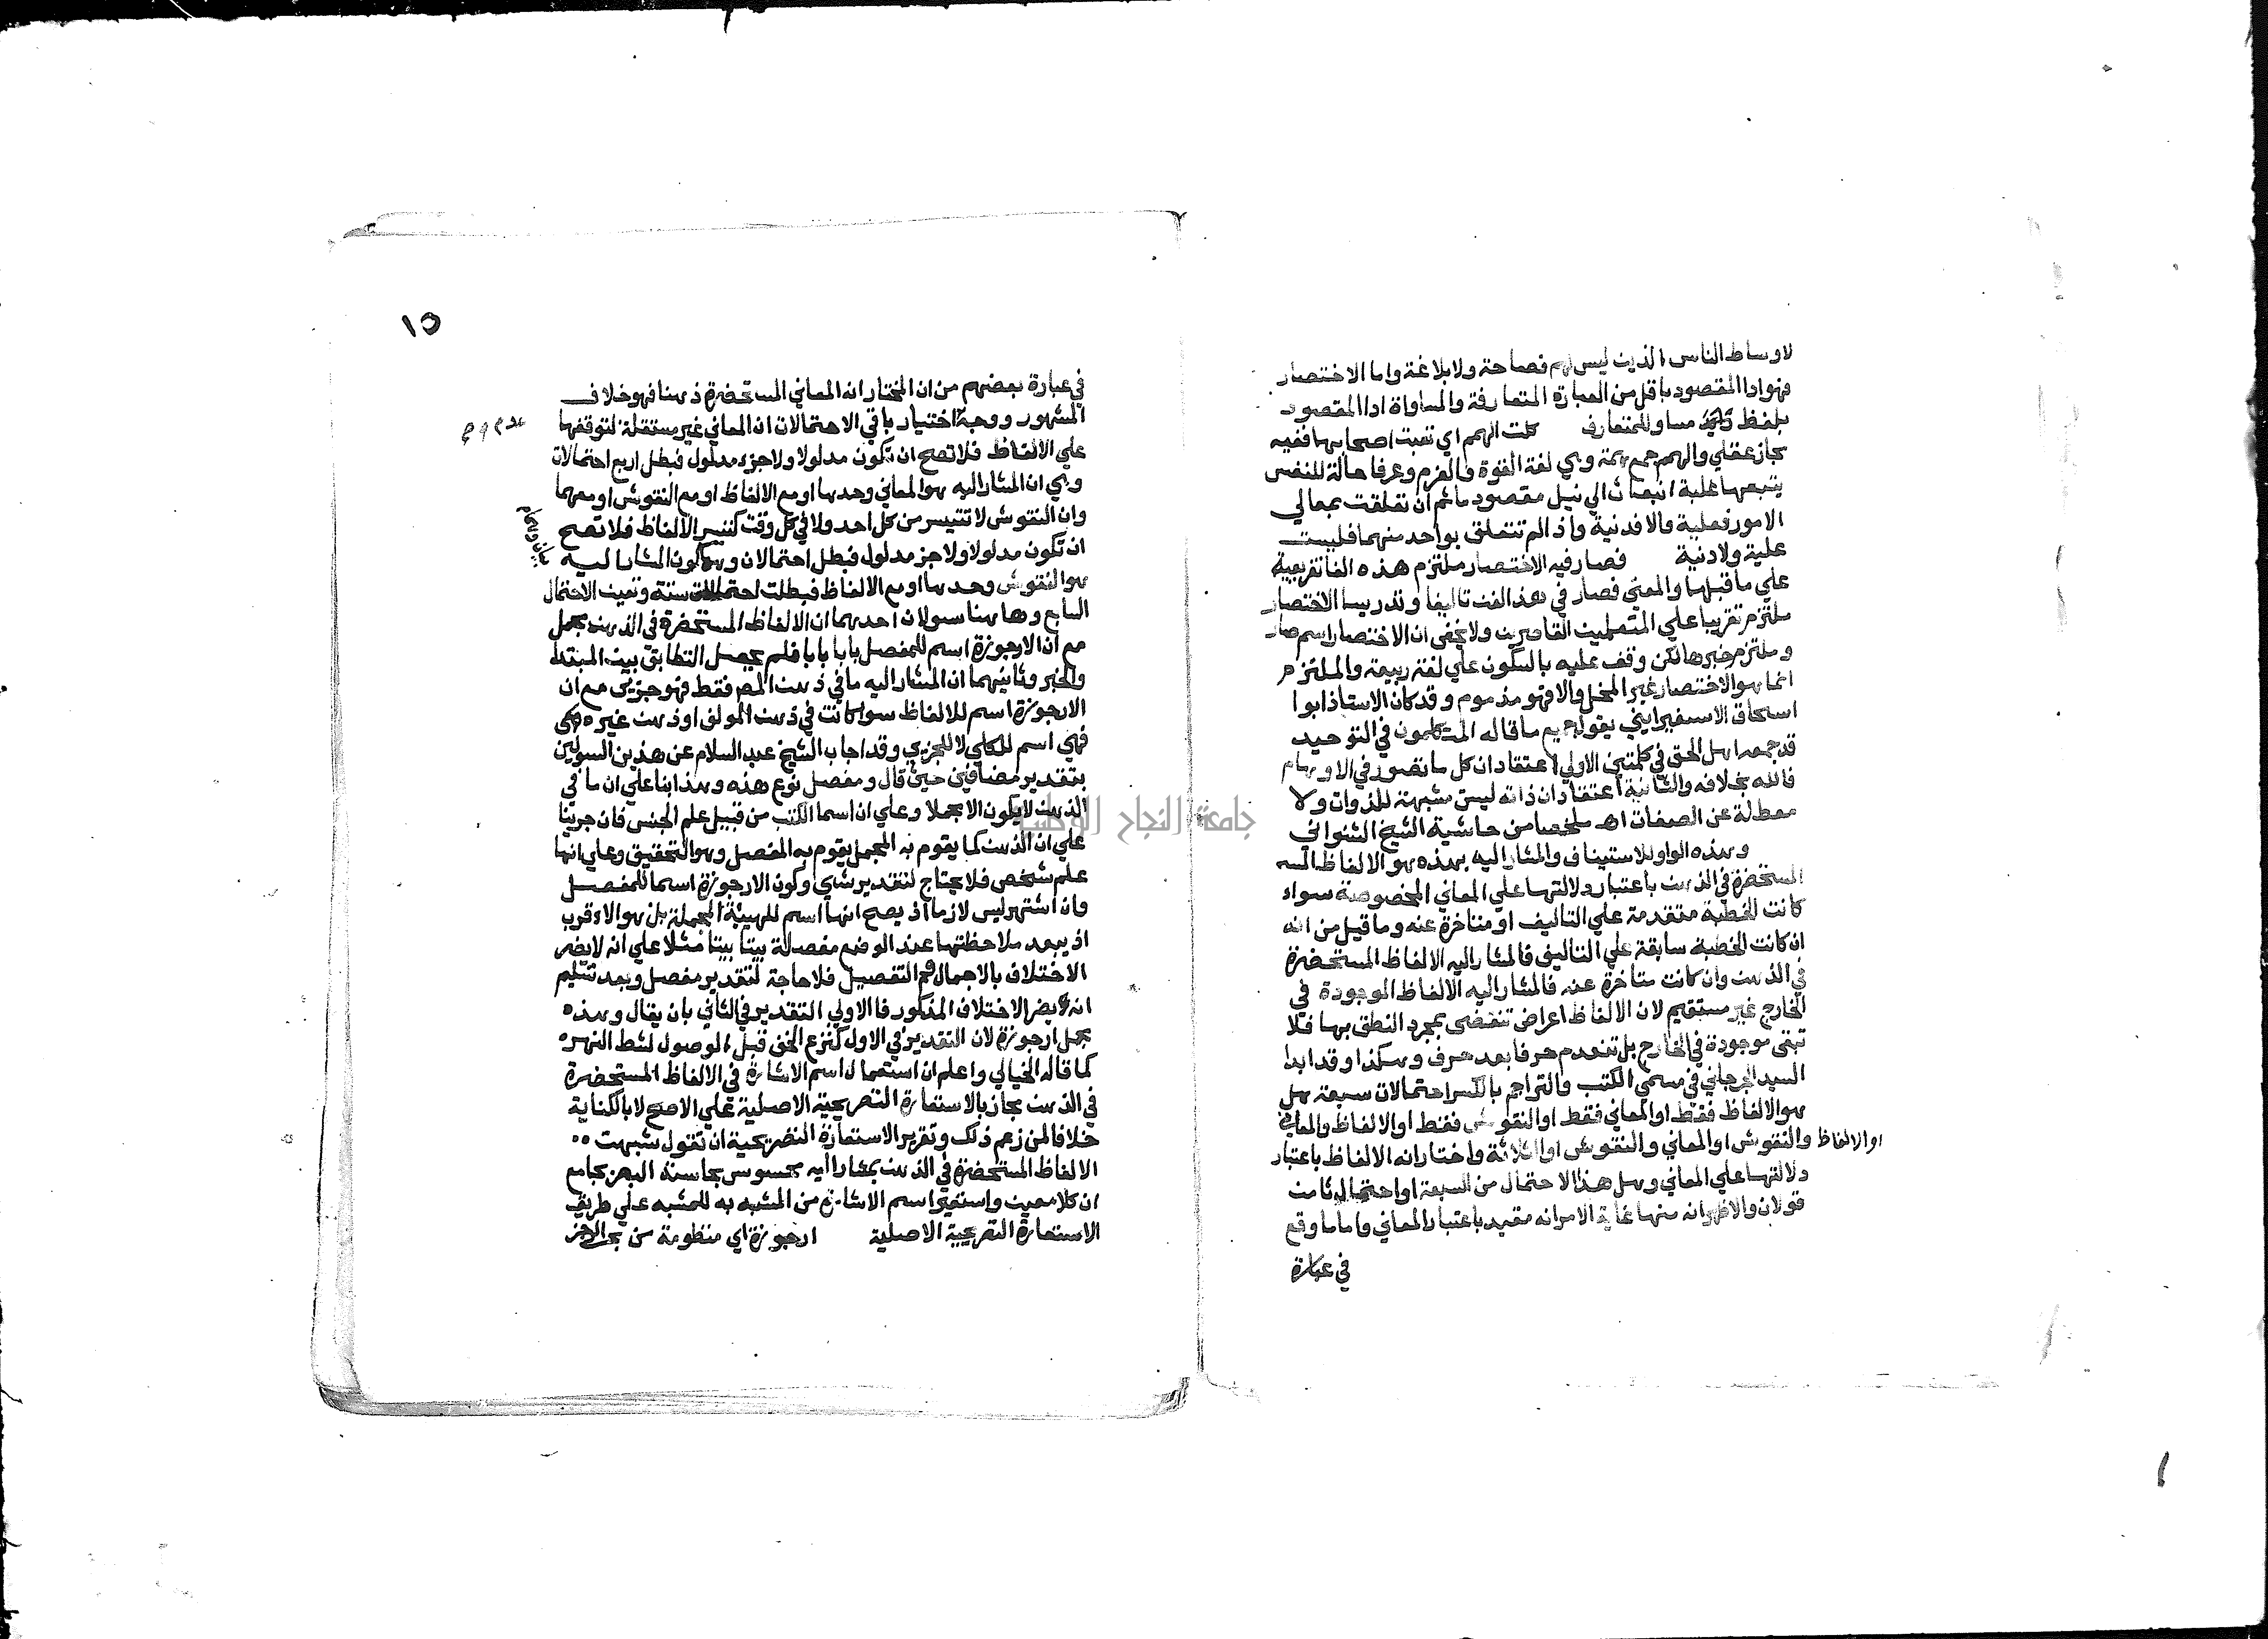 لاوساط الناس الذين ليس لهم فصاحة ولا بلاغة واما الاختصار
فهو ادا المقصود باقل من العبارة المتعارفة والمساواة ادا المقصود
بلفظ مساو للمتعارف كلت الهمم اي تعبت اصحابها ففيه
مجاز عقلي والهمم جمع همة وهي لغة القوة والعزم وعرفا حالة للنفس
يتبعها غلبة انبعاث الي نيل مقصود ما ثم ان تعلقت بمعالي
الامور فعلية والا فدنية واذا لم تتعلق بواحد منهما فليست
علية ولا دنية فصار فيه الاختصار ملتزم هذه الفا تفريعية
علي ما قبلها والمعني فصار في هذا الفن تاليفا وتدريسا الاختصار
ملتزم تقريبا علي المتعلمين القاصرين ولا يخفى ان الاختصار اسم صار
وملتزم خبرها لكن وقف عليه بالسكون علي لغة ربيعة والملتزم
انما هو الاختصار غير المخل والا فهو مذموم وقد كان الاستاذ ابوا
اسحاق الاسفيرايني يقول جميع ما قاله المتكلمون في التوحيد
قد جمعه اهل الحق في كلمتين الاولي اعتقاد ان كل ما تصور في الاوهام
فالله بخلافه والثانية اعتقاد ان ذاته ليست مشبهة للذوات ولا
معطلة عن الصفات اهـ ملخصا من حاشية الشيخ الشنواني
وهذه الواو للاستيناف والمشار اليه بهذه هو الالفاظ المسـ
المستحضرة في الذهن باعتبار دلالتها علي المعاني المخصوصة سواء
كانت الخطبة متقدمة علي التاليف او متاخرة عنه وما قيل من انه
ان كانت الخطبة سابقة علي التاليف فالمشار اليه الالفاظ المستحضرة
في الذهن وان كانت متاخرة عنه فالمشار اليه الالفاظ الموجودة في
الخارج غير مستقيم لان الالفاظ اعراض تنقضى بمجرد النطق بها فلا
تبقى موجودة في الخارج بل تنعدم حرفا بعد حرف وهكذا وقد ابدا
السيد الجرجاني في مسمي الكتب والتراجم بالكسر احتمالات سبعة هل
هو الالفاظ فقط او المعاني فقط او النقوش فقط او الالفاظ والمعاني
او الالفاظ والنقوش او المعاني والنقوش او الثلاثة واختار انه الالفاظ باعتبار
دلالتها علي المعاني وهل هذا الاحتمال من السبعة او احتمال ثامن
قولان والاظهر انه منها غاية الامر انه مقيد باعتبار المعاني واما ما وقع
في عبارة
١٥
في عبارة بعضهم من ان المختار انه المعاني المستحضرة ذهنا فهو خلاف
المشهور ووجه اختيار باقي الاحتمالات ان المعاني غير مستقلة لتوقفها
علي الالفاظ فلا تصح ان تكون مدلولا ولا جزء مدلول فبطل اربع احتمالات
وهي ان المشار اليه هو المعاني وحدها او مع الالفاظ او مع النقوش او معهما
وان النقوش لا تتيسر من كل احد ولا في كل وقت كتيسر الالفاظ فلا تصح
ان تكون مدلولا ولا جز مدلول فبطل احتمالان وهو كون المشار اليه
هو النقوش وحدها او مع الالفاظ فبطلت احتمالات ستة وتعين الاحتمال
السابع وهاهنا سولان احدهما ان الالفاظ المستحضرة في الذهن مجمل
مع ان الارجوزة اسم للمفصل بابا بابا فلم يحصل التطابق بين المبتدا
والخبر وثانيهما ان المشار اليه ما في ذهن المص فقط فهو جزيي مع ان
الارجوزة اسم للالفاظ سوا كانت في ذهن المولف او ذهن غيره
فهي اسم للكلي لا للجزيي وقد اجاب الشيخ عبد السلام عن هذين السولين
بتقدير مضافين حيث قال ومفصل نوع هذه وهذا بنا علي ان ما في
الذهن لا يكون الا مجملا وعلي ان اسما الكتب من قبيل علم الجنس فان جرينا
علي ان الذهن كما يقوم به المجمل يقوم به المفصل وهو التحقيق وعلي انها
علم شخص فلا يحتاج لتقدير شي وكون الارجوزة اسما للمفصل
وان اشتهر ليس لازما اذ يصح انها اسم للهيئة المجملة بل هو الاقرب
اذ يبعد ملاحظتها عند الوضع مفصلة بيتا بيتا مثلا علي انه لا يضر
الاختلاف بالاجمال والتفصيل فلا حاجة لتقدير مفصل وبعد تسليم
انه يضر الاختلاف المذكور فالاولي التقدير في الثاني بان يقال وهذه
مجمل ارجوزة لان التقدير في الاول كنزع الخف قبل الوصول لشط النهر
كما قاله الخيالي واعلم ان استعمال اسم الاشارة في الالفاظ المستحضرة
في الذهن مجاز بالاستعارة التصريحية الاصلية علي الاصح لا بالكناية
خلافا لمن زعم ذلك وتقرير الاستعارة التصريحية ان تقول شبهت
الالفاظ المستحضرة في الذهن بمشار اليه محسوس بحاسة البصر بجامع
ان كلا معين واستعير اسم الاشارة من المشبه به للمشبه علي طريق
الاستعارة التصريحية الاصلية ارجوزة اي منظومة من بحر الرجز
جامعة النجاح الوطنية